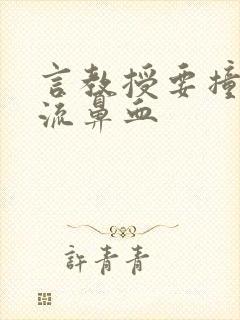 言教授要撞
流鼻血
許青青